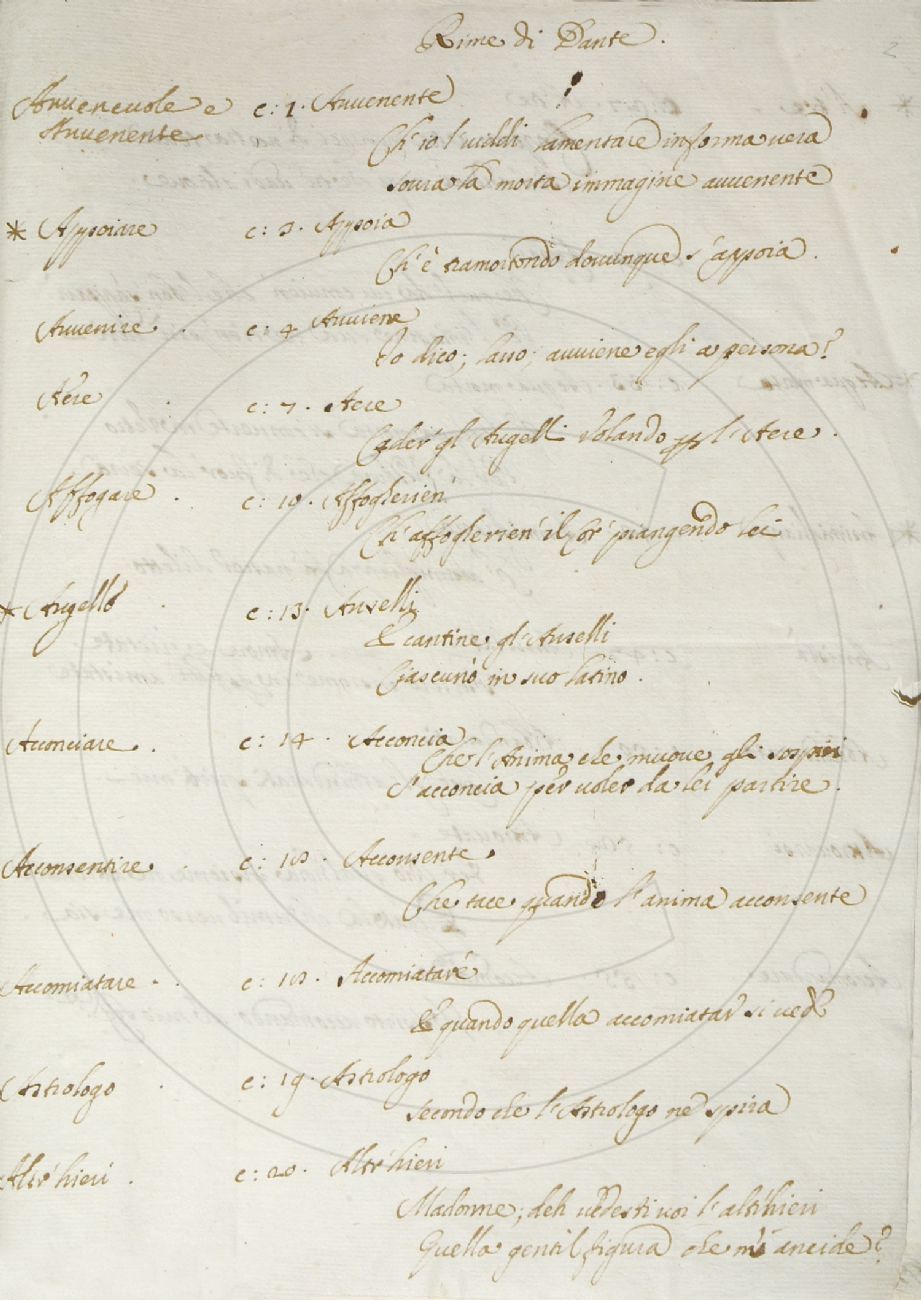 Rime di Dante.
2
Avvenevole e c: 1. Avvenente
Avvenente
Ch'io 'l viddi lamentare in forma vera
sovra la morta immagine avvenente
* Appoiare c: 3. Appoia
Ch'è tramortendo dovunque s'appoia.
Avvenire. c: 4 Avviene
Io dico; lasso; avviene egli a persona?
Aere c: 7. Aere
Cader gl'Augelli volando p l'Aere.
Affogare. c: 10. Affoglierien
Ch'affoglierien' il cor piangendo lei
* Augello c: 13. Auselli
E cantine gl'Auselli
Ciascuno in suo latino.
Acconciare. c: 14. Acconcia
Che l'Anima che muove gli sospiri
s'acconcia per voler da lei partire.
Acconsentire c: 18. Acconsente.
Che tace quando l'anima acconsente
Accomiatare. c: 18. Accomiatare
E quando quella accomiatar si vede
Astrologo c: 19. Astrologo
secondo che l'Astrologo ne spira
Altr'hieri. c: 20. Altr'hieri
Madonne; deh vedesti voi l'altr'hieri
Quella gentil figura che m'ancide?